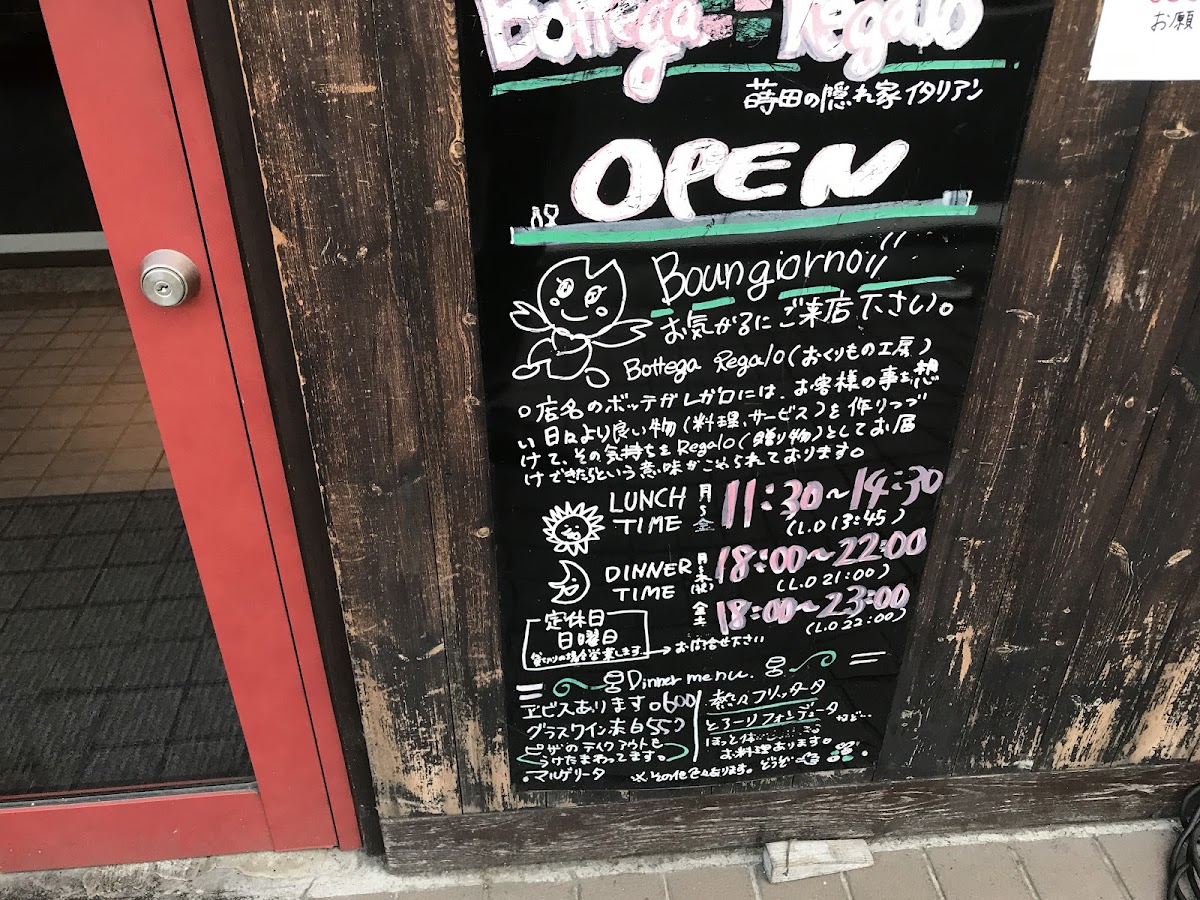 Bottega Regalo
お願
蒔田の隠れ家イタリアン
OPEN
Boungiorno!!
お気がるにご来店下さい。
Bottega Regalo(おくりもの工房)
店名のボッテガレガロには、お客様の事を想
い日々より良い物(料理、サービス)を作りつづ
けて、その気持ちをRegalo(贈り物)としてお届
けできたらという意味がこめられております。
LUNCH TIME 月〜金 11:30〜14:30
(L.O 13:45)
DINNER TIME 月〜木(祝) 18:00〜22:00
(L.O 21:00)
金土 18:00〜23:00
(L.O 22:00)
定休日
日曜日
貸切りの場合営業します→お問合せ下さい
Dinner menu.
ヱビスあります。600
グラスワイン赤白550
ピザのテイクアウトも
うけたまわってます。
・マルゲリータ
熱々フリッタータ
とろーりフォンデュータ
など…
お料理あります。
※その他色々あります。どうぞ